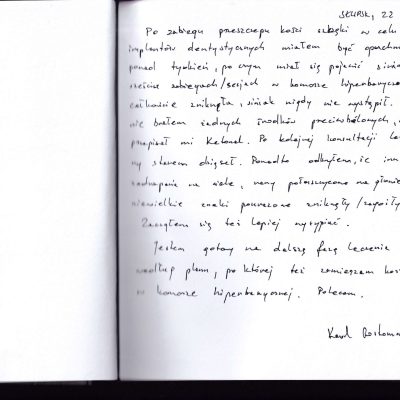 SŁUPSK, 22
Po zabiegu przeszczepu kości szczęki w celu
implantów dentystycznych miałem być opuchn
ponad tydzień, po czym miał się pojawić sinia
sześciu zabiegach/sesjach w komorze hiperbaryczn
całkowicie zniknęła, siniak nigdy nie wystąpił.
nie brałem żadnych środków przeciwbólowych,
przepisał mi Ketonal. Po kolejnej konsultacji le
ny stanem dziąseł. Ponadto odkryłem, że inn
zadrapania na ciele, rany
niewielkie znaki zniknęły/zagoiły
Zacząłem się też lepiej wysypiać.
Jestem gotowy na dalszą fazę leczenia
według planu, po której też zamierzam kor
w komorze hiperbarycznej. Polecam.
Karol